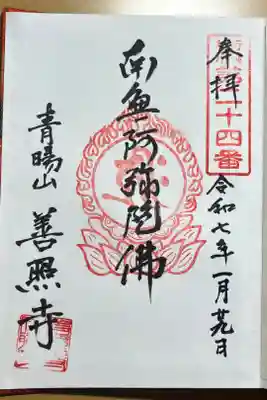 奉拝
二十四番
令和七年一月廿九日
南無阿弥陀佛
青陽山
善照寺